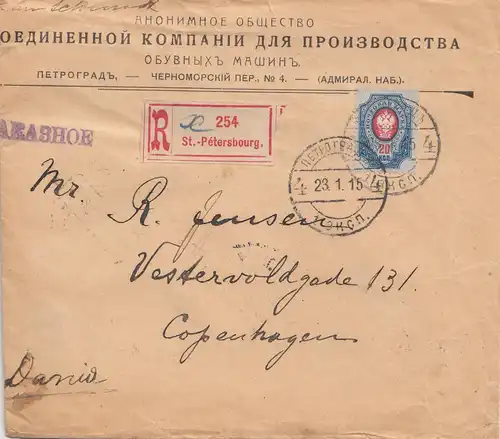 АНОНИМНОЕ ОБЩЕСТВО
ОЕДИНЕННОЙ КОМПАНІИ ДЛЯ ПРОИЗВОДСТВА
ОБУВНЫХЪ МАШИНЪ.
ПЕТРОГРАДЪ, — ЧЕРНОМОРСКІЙ ПЕР., № 4. — (АДМИРАЛ. НАБ.).
АКАЗНОЕ
R 254
St.-Pétersbourg.
20
КОП
ПЕТРОГРАДЪ
4 23.1.15 4
ЭКСП.
15 4
ЭКСП.
Mr. R. Jensen
Vestervoldgade 131.
Copenhagen
Dania